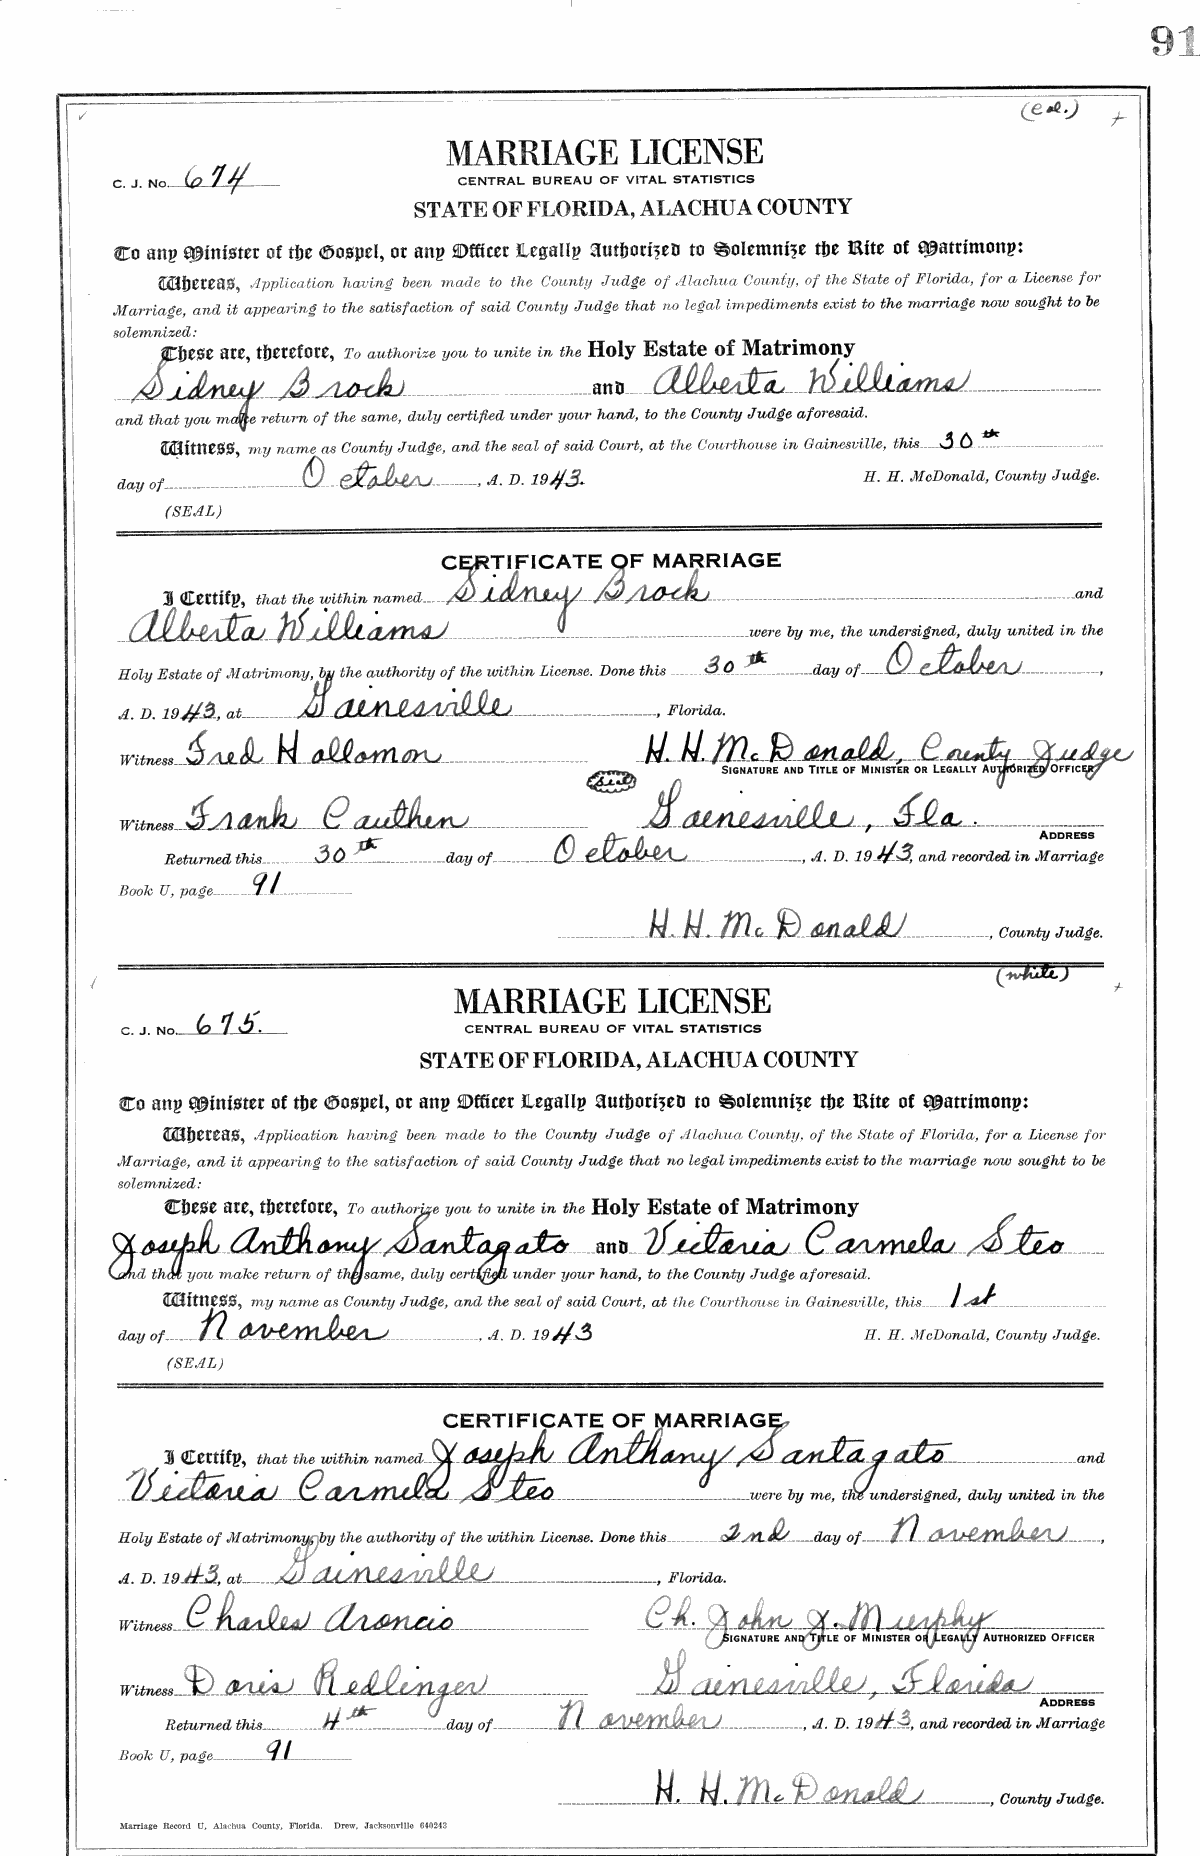 91
(Col.)
MARRIAGE LICENSE
C. J. No. 674
CENTRAL BUREAU OF VITAL STATISTICS
STATE OF FLORIDA, ALACHUA COUNTY
To any Minister of the Gospel, or any Officer Legally Authorized to Solemnize the Rite of Matrimony:
Whereas, Application having been made to the County Judge of Alachua County, of the State of Florida, for a License for
Marriage, and it appearing to the satisfaction of said County Judge that no legal impediments exist to the marriage now sought to be
solemnized:
These are, therefore, To authorize you to unite in the Holy Estate of Matrimony
Sidney Brock and Alberta Williams
and that you make return of the same, duly certified under your hand, to the County Judge aforesaid.
Witness, my name as County Judge, and the seal of said Court, at the Courthouse in Gainesville, this 30th
day of October, A. D. 1943. H. H. McDonald, County Judge.
(SEAL)
CERTIFICATE OF MARRIAGE
I Certify, that the within named Sidney Brock and
Alberta Williams were by me, the undersigned, duly united in the
Holy Estate of Matrimony, by the authority of the within License. Done this 30th day of October,
A. D. 1943, at Gainesville, Florida.
Witness Fred Hallamon H. H. McDonald, County Judge
SIGNATURE AND TITLE OF MINISTER OR LEGALLY AUTHORIZED OFFICER
(Seal)
Witness Frank Cauthen Gainesville, Fla.
ADDRESS
Returned this 30th day of October, A. D. 1943, and recorded in Marriage
Book U, page 91
H. H. McDonald, County Judge.
(white)
MARRIAGE LICENSE
C. J. No. 675.
CENTRAL BUREAU OF VITAL STATISTICS
STATE OF FLORIDA, ALACHUA COUNTY
To any Minister of the Gospel, or any Officer Legally Authorized to Solemnize the Rite of Matrimony:
Whereas, Application having been made to the County Judge of Alachua County, of the State of Florida, for a License for
Marriage, and it appearing to the satisfaction of said County Judge that no legal impediments exist to the marriage now sought to be
solemnized:
These are, therefore, To authorize you to unite in the Holy Estate of Matrimony
Joseph Anthony Santagato and Victoria Carmela Steo
and that you make return of the same, duly certified under your hand, to the County Judge aforesaid.
Witness, my name as County Judge, and the seal of said Court, at the Courthouse in Gainesville, this 1st
day of November, A. D. 1943 H. H. McDonald, County Judge.
(SEAL)
CERTIFICATE OF MARRIAGE
I Certify, that the within named Joseph Anthony Santagato and
Victoria Carmela Steo were by me, the undersigned, duly united in the
Holy Estate of Matrimony, by the authority of the within License. Done this 2nd day of November,
A. D. 1943, at Gainesville, Florida.
Witness Charles Aroncio Ch. John J. Murphy
SIGNATURE AND TITLE OF MINISTER OR LEGALLY AUTHORIZED OFFICER
Witness Doris Redlinger Gainesville, Florida
ADDRESS
Returned this 4th day of November, A. D. 1943, and recorded in Marriage
Book U, page 91
H. H. McDonald, County Judge.
Marriage Record U, Alachua County, Florida. Drew, Jacksonville 640243